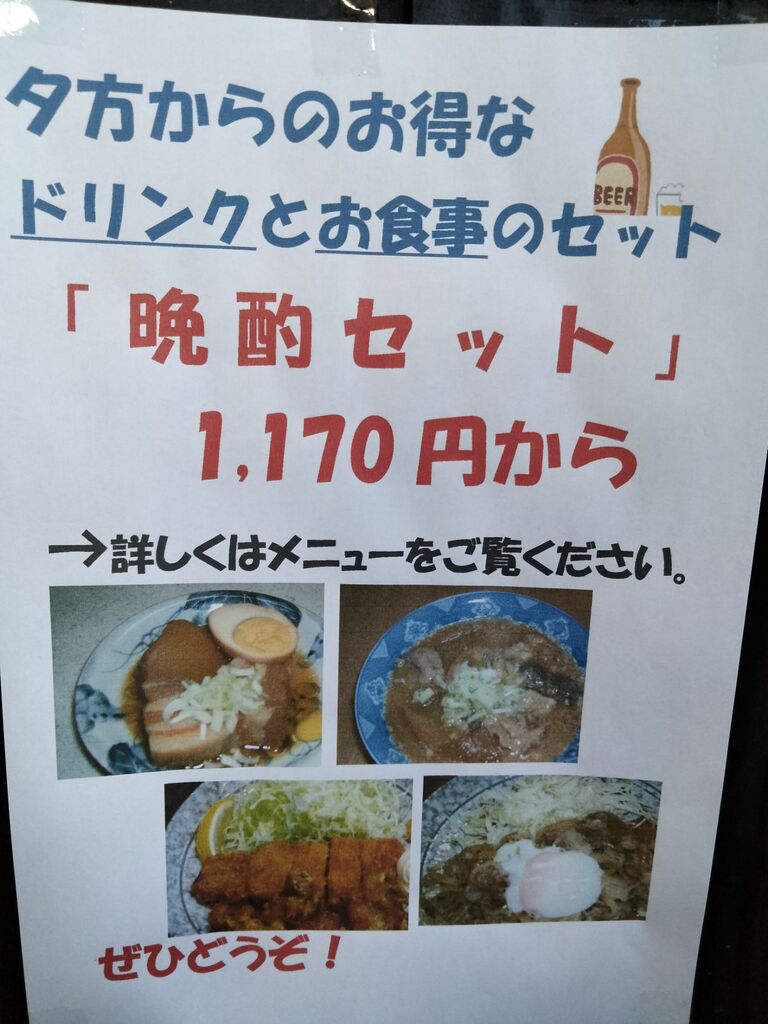 夕方からのお得な
BEER
ドリンクとお食事のセット
「晩酌セット」
1,170円から
→詳しくはメニューをご覧ください。
ぜひどうぞ！